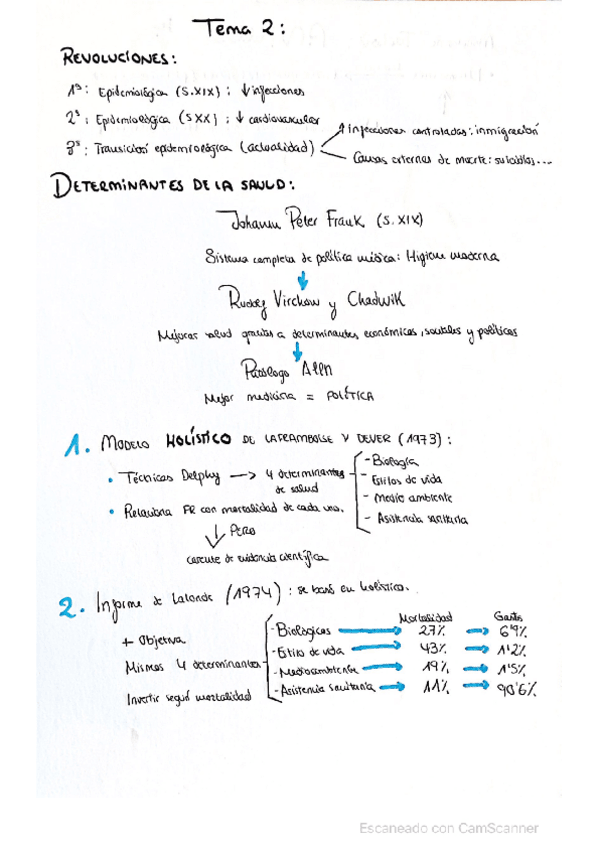 Tema 2:
REVOLUCIONES:
1ª: Epidemiológica (S.XIX): ↓ infecciones
2ª: Epidemiológica (S XX): ↓ cardiovascular
3ª: Transición epidemiológica (actualidad)
Infecciones controladas: inmigración
Causas externas de muerte: suicidios...
DETERMINANTES DE LA SALUD:
Johann Peter Frank (S.XIX)
Sistema completo de política médica: Higiene moderna
Virchow y Chadwik
Mejorar salud gracias a determinantes económicos, sociales y políticos
Patólogo Alln
Mejor medicina = POLÍTICA
1. MODELO HOLÍSTICO DE LAFRAMBOISE Y DEVER (1973):
• Técnicas Delphy → 4 determinantes de salud
- Biología
- Estilos de vida
- Medio ambiente
- Asistencia sanitaria
• Relaciona FR con mortalidad de cada uno.
PERO
carecute de evidencia científica
2. Informe de Lalonde (1974): se basó en holístico.
Mortalidad Gastos
+ Objetiva
Mismos 4 determinantes
Invertir según mortalidad
- Biológicas → 27% → 6'9%
- Estilo de vida → 43% → 1'2%
- Medioambiente → 19% → 1'5%
- Asistencia sanitaria → 11% → 90'6%
Escaneado con CamScanner